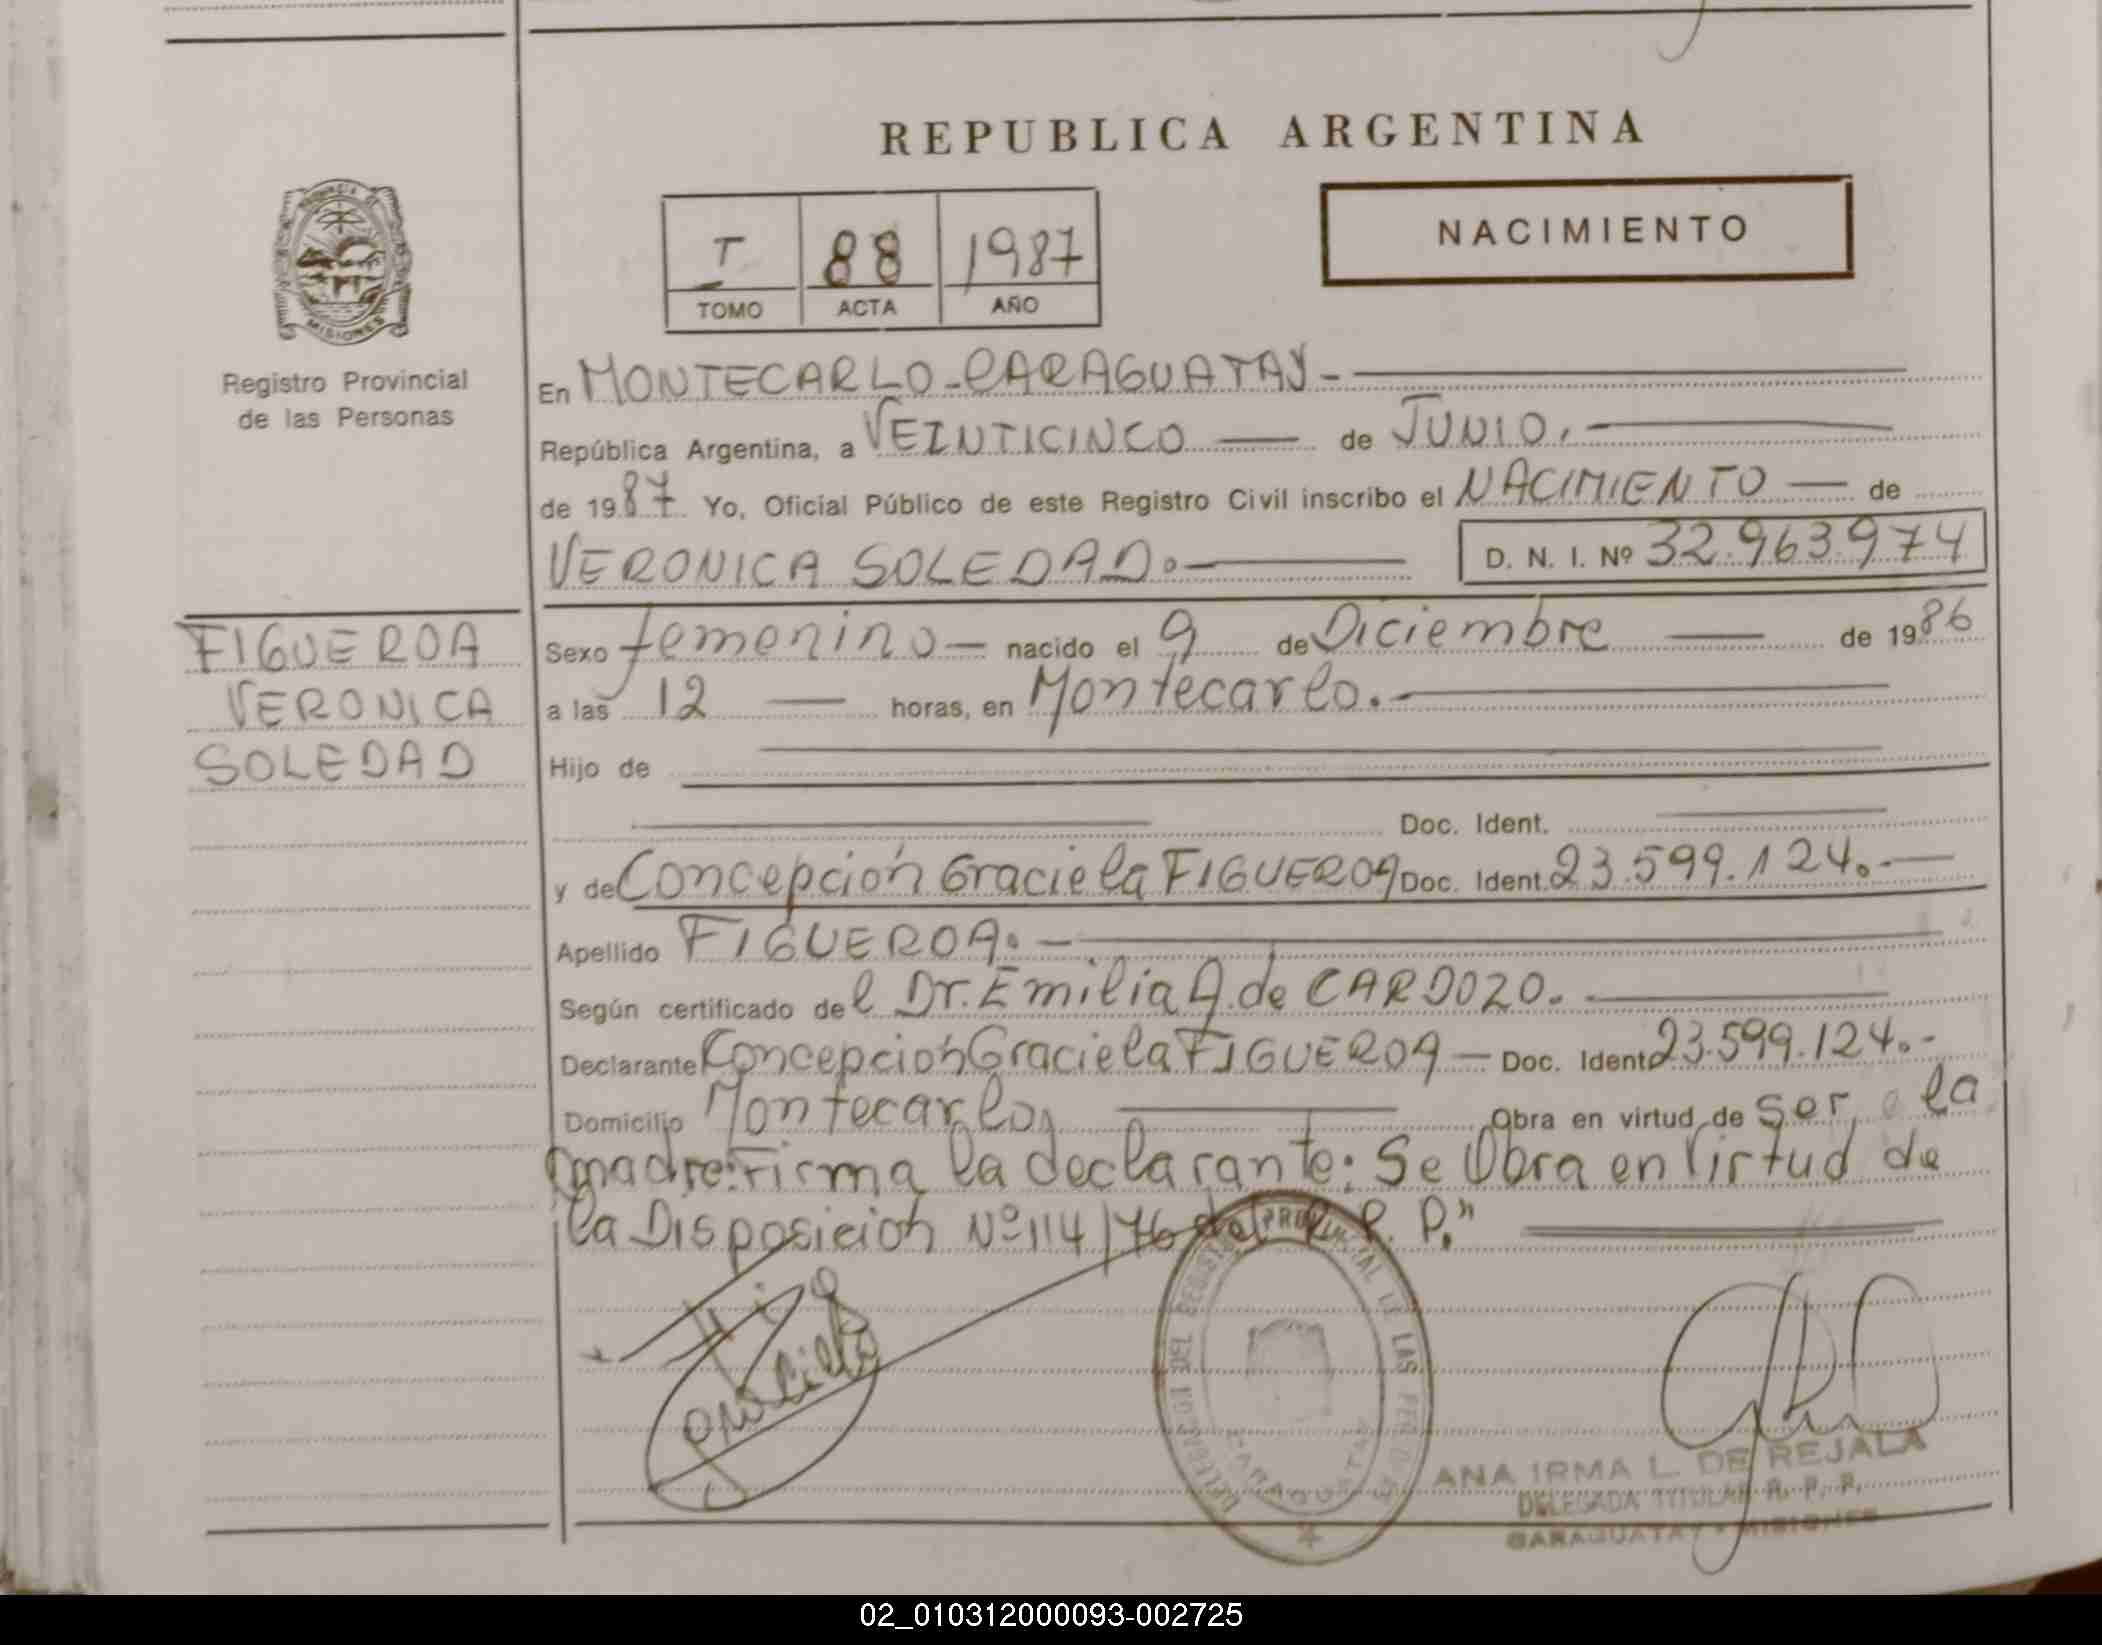 REPUBLICA ARGENTINA
PROVINCIA
MISIONES
Registro Provincial
de las Personas
T 88 1987
TOMO ACTA AÑO
NACIMIENTO
En MONTECARLO-CARAGUATAY-
República Argentina, a VEINTICINCO de JUNIO.
de 1987 Yo, Oficial Público de este Registro Civil inscribo el NACIMIENTO de
VERONICA SOLEDAD.
D. N. I. Nº 32.963.974
FIGUEROA
VERONICA
SOLEDAD
Sexo femenino nacido el 9 de Diciembre de 1986
a las 12 horas, en Montecarlo.
Hijo de
Doc. Ident.
y de Concepción Graciela FIGUEROA Doc. Ident. 23.599.124.-
Apellido FIGUEROA.-
Según certificado del Dr. Emilia A. de CARDOZO.
Declarante Concepcion Graciela FIGUEROA Doc. Ident 23.599.124.-
Domicilio Montecarlo, Obra en virtud de ser la
madre: Firma la declarante: Se Obra en Virtud de
la Disposicion Nº 114/76 del R. P. P."
DELEGACION DEL REGISTRO PROVINCIAL DE LAS PERSONAS
CARAGUATAY
ANA IRMA L. DE REJALA
DELEGADA TITULAR R. P. P.
CARAGUATAY - MISIONES
02_010312000093-002725